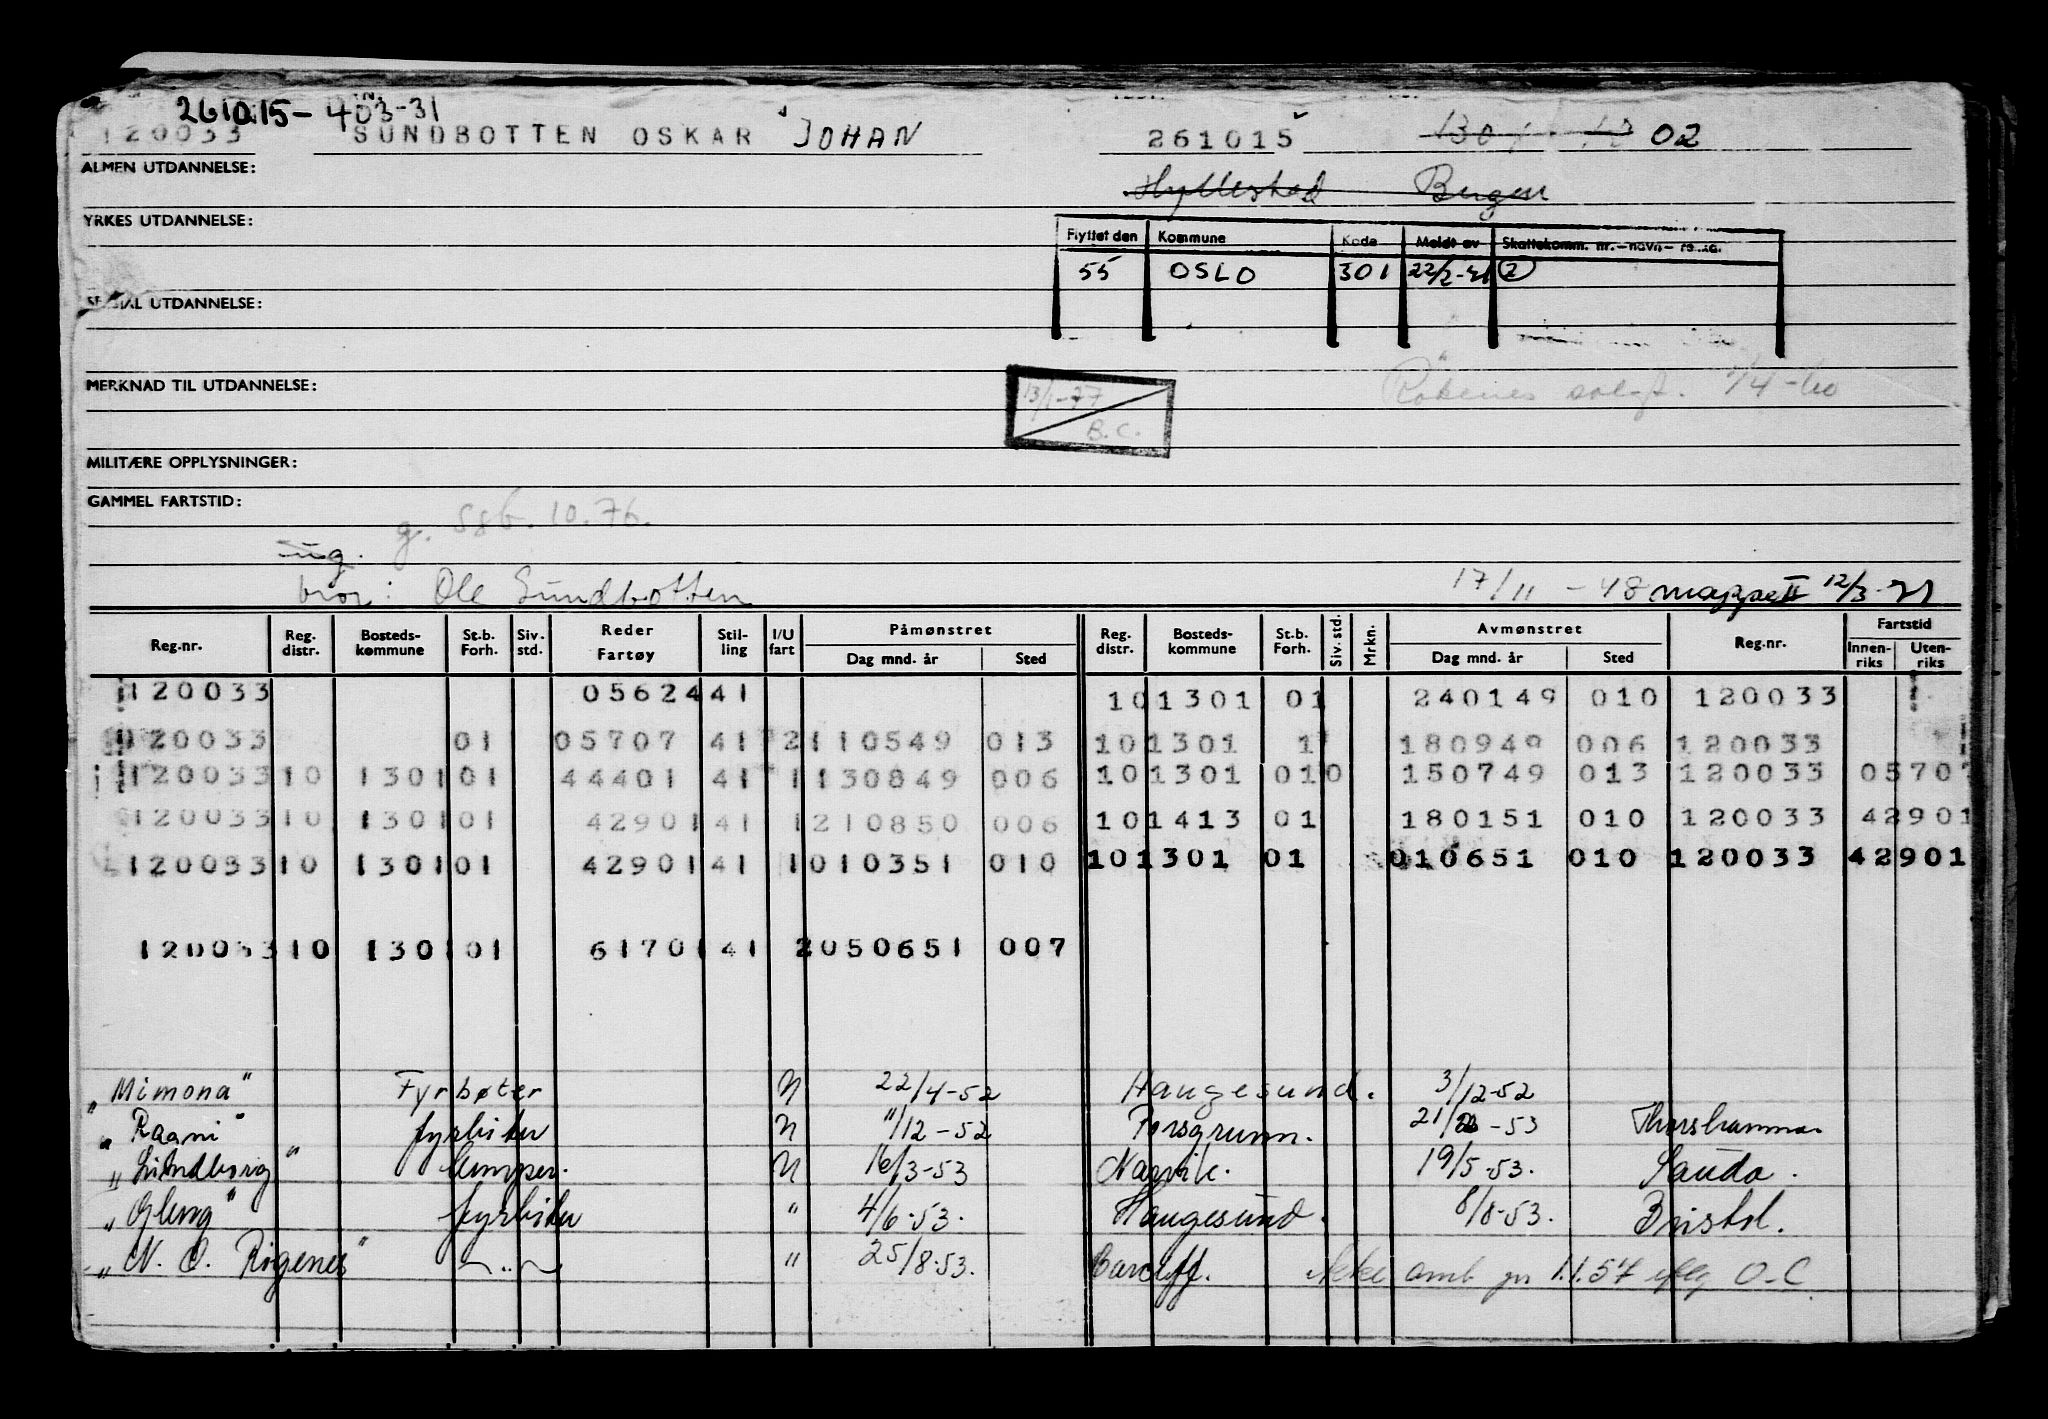 261015-403-31
120033 SUNDBOTTEN OSKAR JOHAN 261015 02
ALMEN UTDANNELSE:
Hyllestad Bergen
YRKES UTDANNELSE:
Flyttet den Kommune Kode Meldt av Skattekomm. nr.-navn-
55 OSLO 301 22/2-71 2
SPESIAL UTDANNELSE:
MERKNAD TIL UTDANNELSE:
Røkenes solgt. 1/4-60
13/1-77
B.C.
MILITÆRE OPPLYSNINGER:
GAMMEL FARTSTID:
g. 10.76.
ug.
bror: Ole Sundbotten 17/11-48 mappe II 12/3-71
Reg.nr. Reg. distr. Bosteds-kommune St.b. Forh. Siv. std. Reder Fartøy Stil-ling I/U fart Påmønstret Dag mnd. år Sted Reg. distr. Bosteds-kommune St.b. Forh. Siv. std. Mrkn. Avmønstret Dag mnd. år Sted Reg.nr. Fartstid Innen-riks Uten-riks
120033 05624 41 10 1301 01 240149 010 120033
120033 01 05707 41 2 110549 013 10 1301 1 180949 006 120033
120033 10 1301 01 44401 41 1 130849 006 10 1301 010 150749 013 120033 05707
120033 10 1301 01 42901 41 1 210850 006 10 1413 01 180151 010 120033 42901
120033 10 1301 01 42901 41 1 010351 010 10 1301 01 010651 010 120033 42901
120033 10 1301 01 61701 41 2 050651 007
"Mimona" Fyrbøter U 22/4-52 Haugesund. 3/12-52
"Ragni" fyrbøter U 11/12-52 Porsgrunn. 21/2-53 Thorshamna
"Lindborg" lemper. U 16/3-53 Narvik. 19/5-53. Sauda.
" fyrbøter " 4/6-53. Haugesund. 8/8-53. Bristol.
"N. O. Røgenes" — " — " 25/8-53. Cardiff. Ikke omb pr 1.1.57 iflg O-C